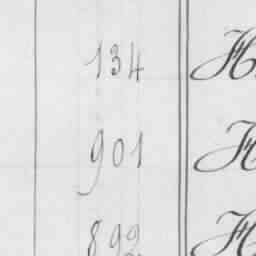 134 H
901 H
892 H